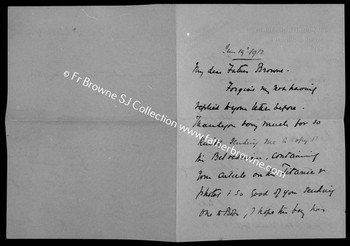 1912
My dear Father Browne.
Forgive my not having
replied to your letter before.
Thank you very much for so
kindly sending me a copy of
the Belvederian, containing
your article on the Titanic &
photos & so good of you sending
one to , I hope the boy has
© Fr Browne SJ Collection
www.fatherbrowne.com